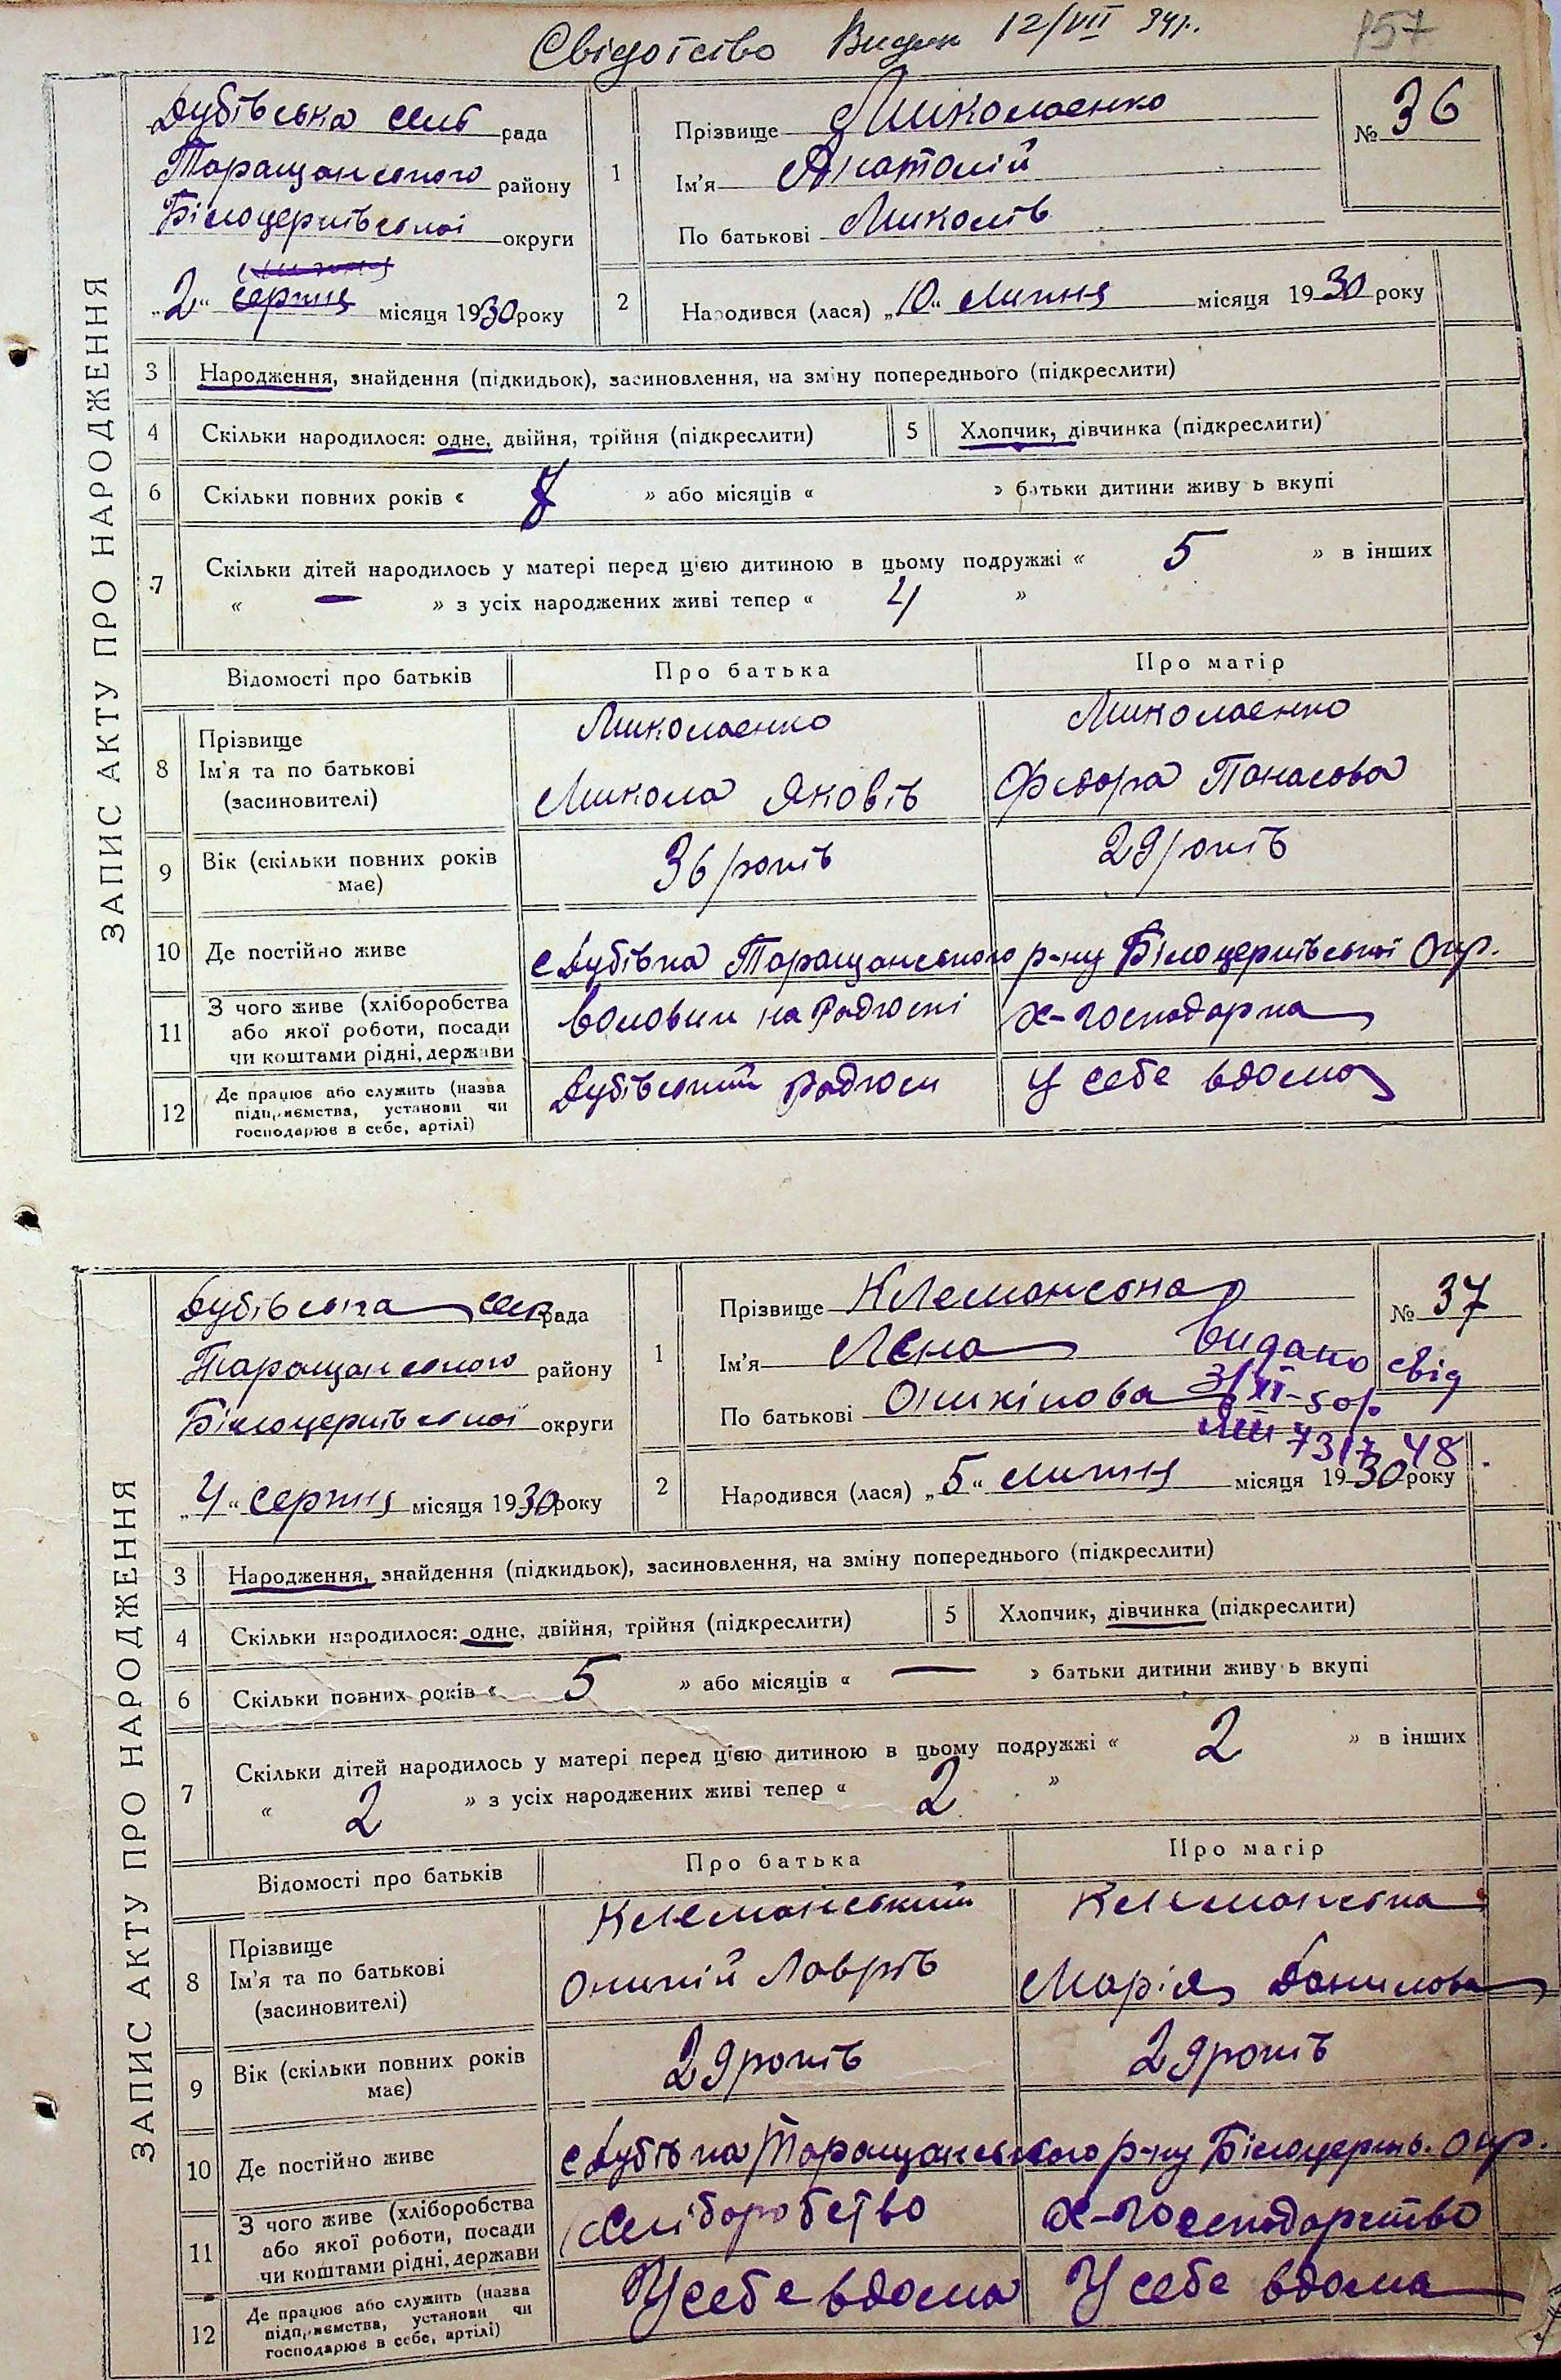 Свідотство Видан 12/VII 34р.
157
ЗАПИС АКТУ ПРО НАРОДЖЕННЯ
Дубівська сель рада
Таращанського району
Білоцерківської округи
„2“ серпня місяця 1930 року
1
Прізвище Миколаенко
Ім'я Анатолій
По батькові Миколів
№ 36
2
Народився (лася) „10“ Липня місяця 1930 року
3 Народження, знайдення (підкидьок), засиновлення, на зміну попереднього (підкреслити)
4 Скільки народилося: одне, двійня, трійня (підкреслити)
5 Хлопчик, дівчинка (підкреслити)
6 Скільки повних років « » або місяців « » батьки дитини живу ь вкупі
7 Скільки дітей народилось у матері перед цією дитиною в цьому подружжі « 5 » в інших
« — » з усіх народжених живі тепер « 4 »
Відомості про батьків Про батька Про матір
8 Прізвище
Ім'я та по батькові
(засиновителі)
Миколаенко
Микола Яковів
Миколаенко
Федора Панасова
9 Вік (скільки повних років
має)
36 років
29 років
10 Де постійно живе
с Дубівка Таращанського р-ну Білоцерківської Окр.
11 З чого живе (хліборобства
або якої роботи, посади
чи коштами рідні, держави
на Радгоспі
х-господарка
12 Де працює або служить (назва
підп,иємства, установи чи
господарює в себе, артілі)
Дубівський радгосп
У себе вдома
ЗАПИС АКТУ ПРО НАРОДЖЕННЯ
Дубівська сель рада
Таращанського району
Білоцерківської округи
„4“ серпня місяця 1930 року
1
Прізвище Клеманська
Ім'я Лєна
По батькові Оникіова
№ 37
Видано свід
3/XI-50р
7317 48
2
Народився (лася) „5“ липня місяця 1930 року
3 Народження, знайдення (підкидьок), засиновлення, на зміну попереднього (підкреслити)
4 Скільки народилося: одне, двійня, трійня (підкреслити)
5 Хлопчик, дівчинка (підкреслити)
6 Скільки повних років « 5 » або місяців « — » батьки дитини живу ь вкупі
7 Скільки дітей народилось у матері перед цією дитиною в цьому подружжі « 2 » в інших
« 2 » з усіх народжених живі тепер « 2 »
Відомості про батьків Про батька Про матір
8 Прізвище
Ім'я та по батькові
(засиновителі)
Клеманський
Оникій Лаврів
Клеманська
Марія Данилова
9 Вік (скільки повних років
має)
29 років
29 років
10 Де постійно живе
с Дубівка Таращанського р-ну Білоцерків. Окр.
11 З чого живе (хліборобства
або якої роботи, посади
чи коштами рідні, держави
Хліборобство
х-господарство
12 Де працює або служить (назва
підп,иємства, установи чи
господарює в себе, артілі)
У себе вдома
У себе вдома